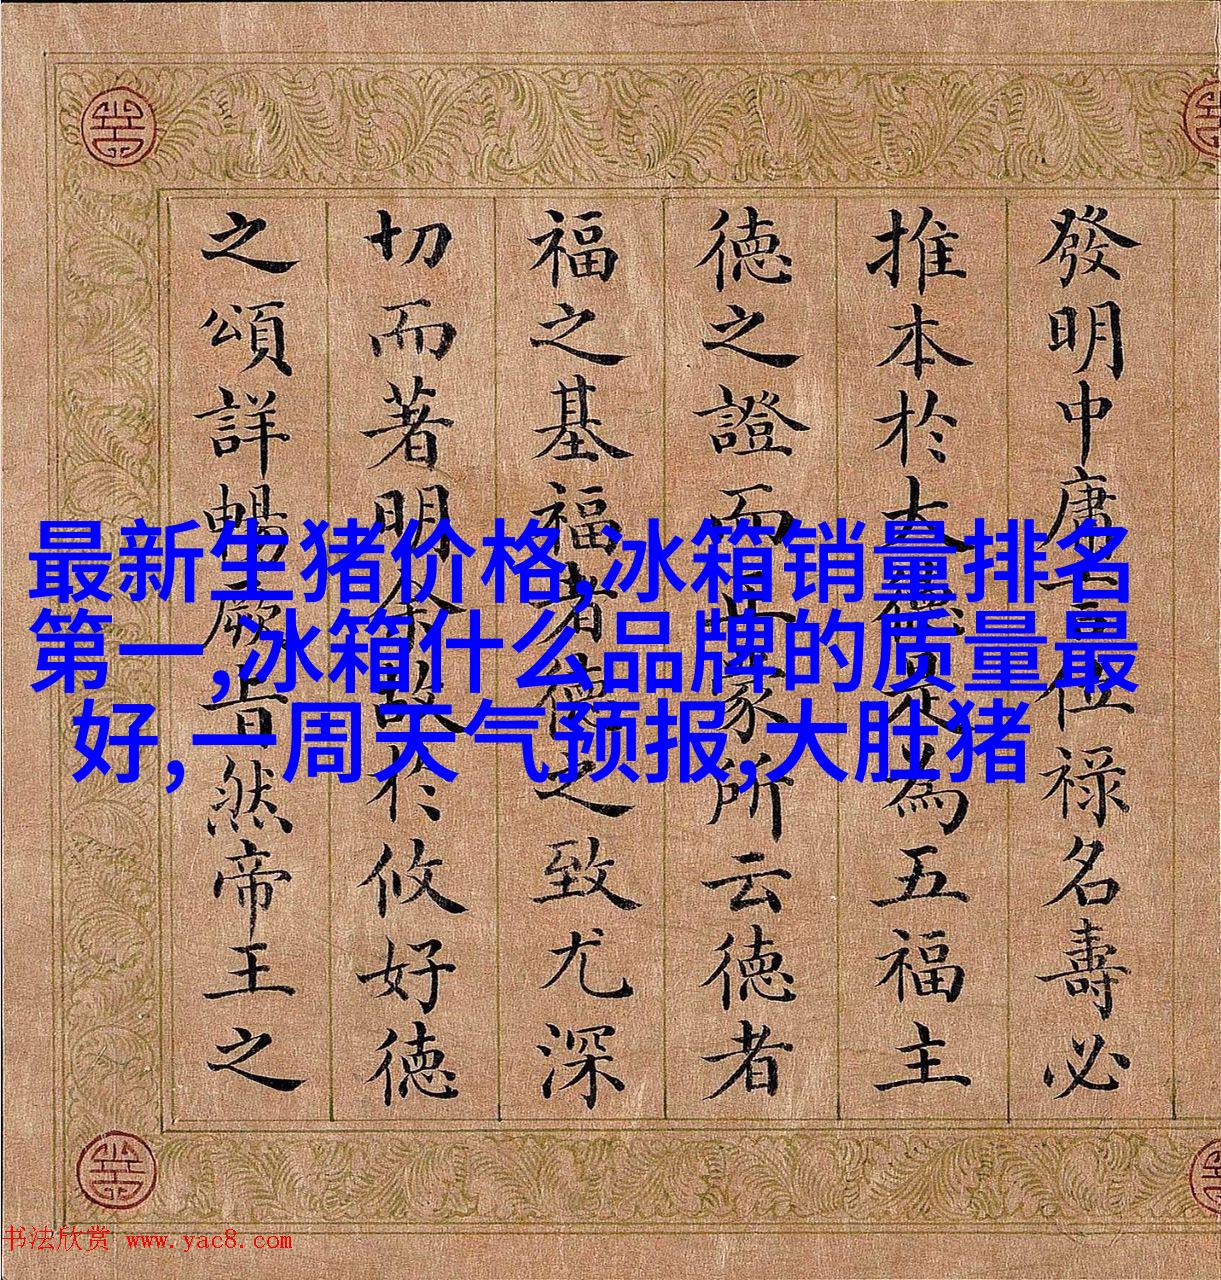 發明中庸言位祿名壽必
推本於大德是為五福主
德之證而正蒙所云德者
福之基福者德之致尤深
切而著明余故於攸好德
之頌詳暢厥旨然帝王之
最新生猪价格,冰箱销量排名
第一,冰箱什么品牌的质量最
好,一周天气预报,大肚猪
书法欣赏 www.yac8.com